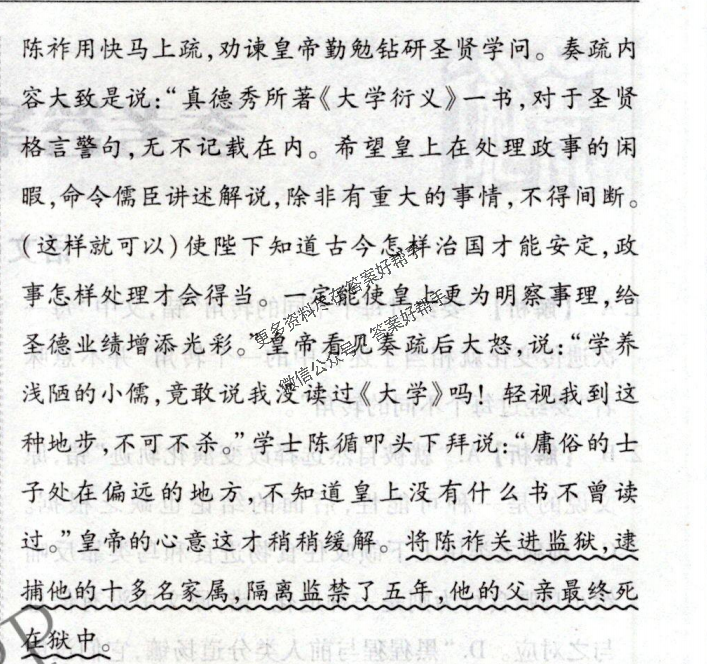 陈祚用快马上疏,劝谏皇帝勤勉钻研圣贤学问。奏疏内
容大致是说:“真德秀所著《大学衍义》一书,对于圣贤
格言警句,无不记载在内。希望皇上在处理政事的闲
暇,命令儒臣讲述解说,除非有重大的事情,不得间断。
(这样就可以)使陛下知道古今怎样治国才能安定,政
事怎样处理才会得当。一定能使皇上更为明察事理,给
圣德业绩增添光彩。”皇帝看见奏疏后大怒,说:“学养
浅陋的小儒,竟敢说我没读过《大学》吗!轻视我到这
种地步,不可不杀。”学士陈循叩头下拜说:“庸俗的士
子处在偏远的地方,不知道皇上没有什么书不曾读
过。”皇帝的心意这才稍稍缓解。将陈祚关进监狱,逮
捕他的十多名家属,隔离监禁了五年,他的父亲最终死
在狱中。
更多资料尽在答案好帮手
微信公众号:答案好帮手